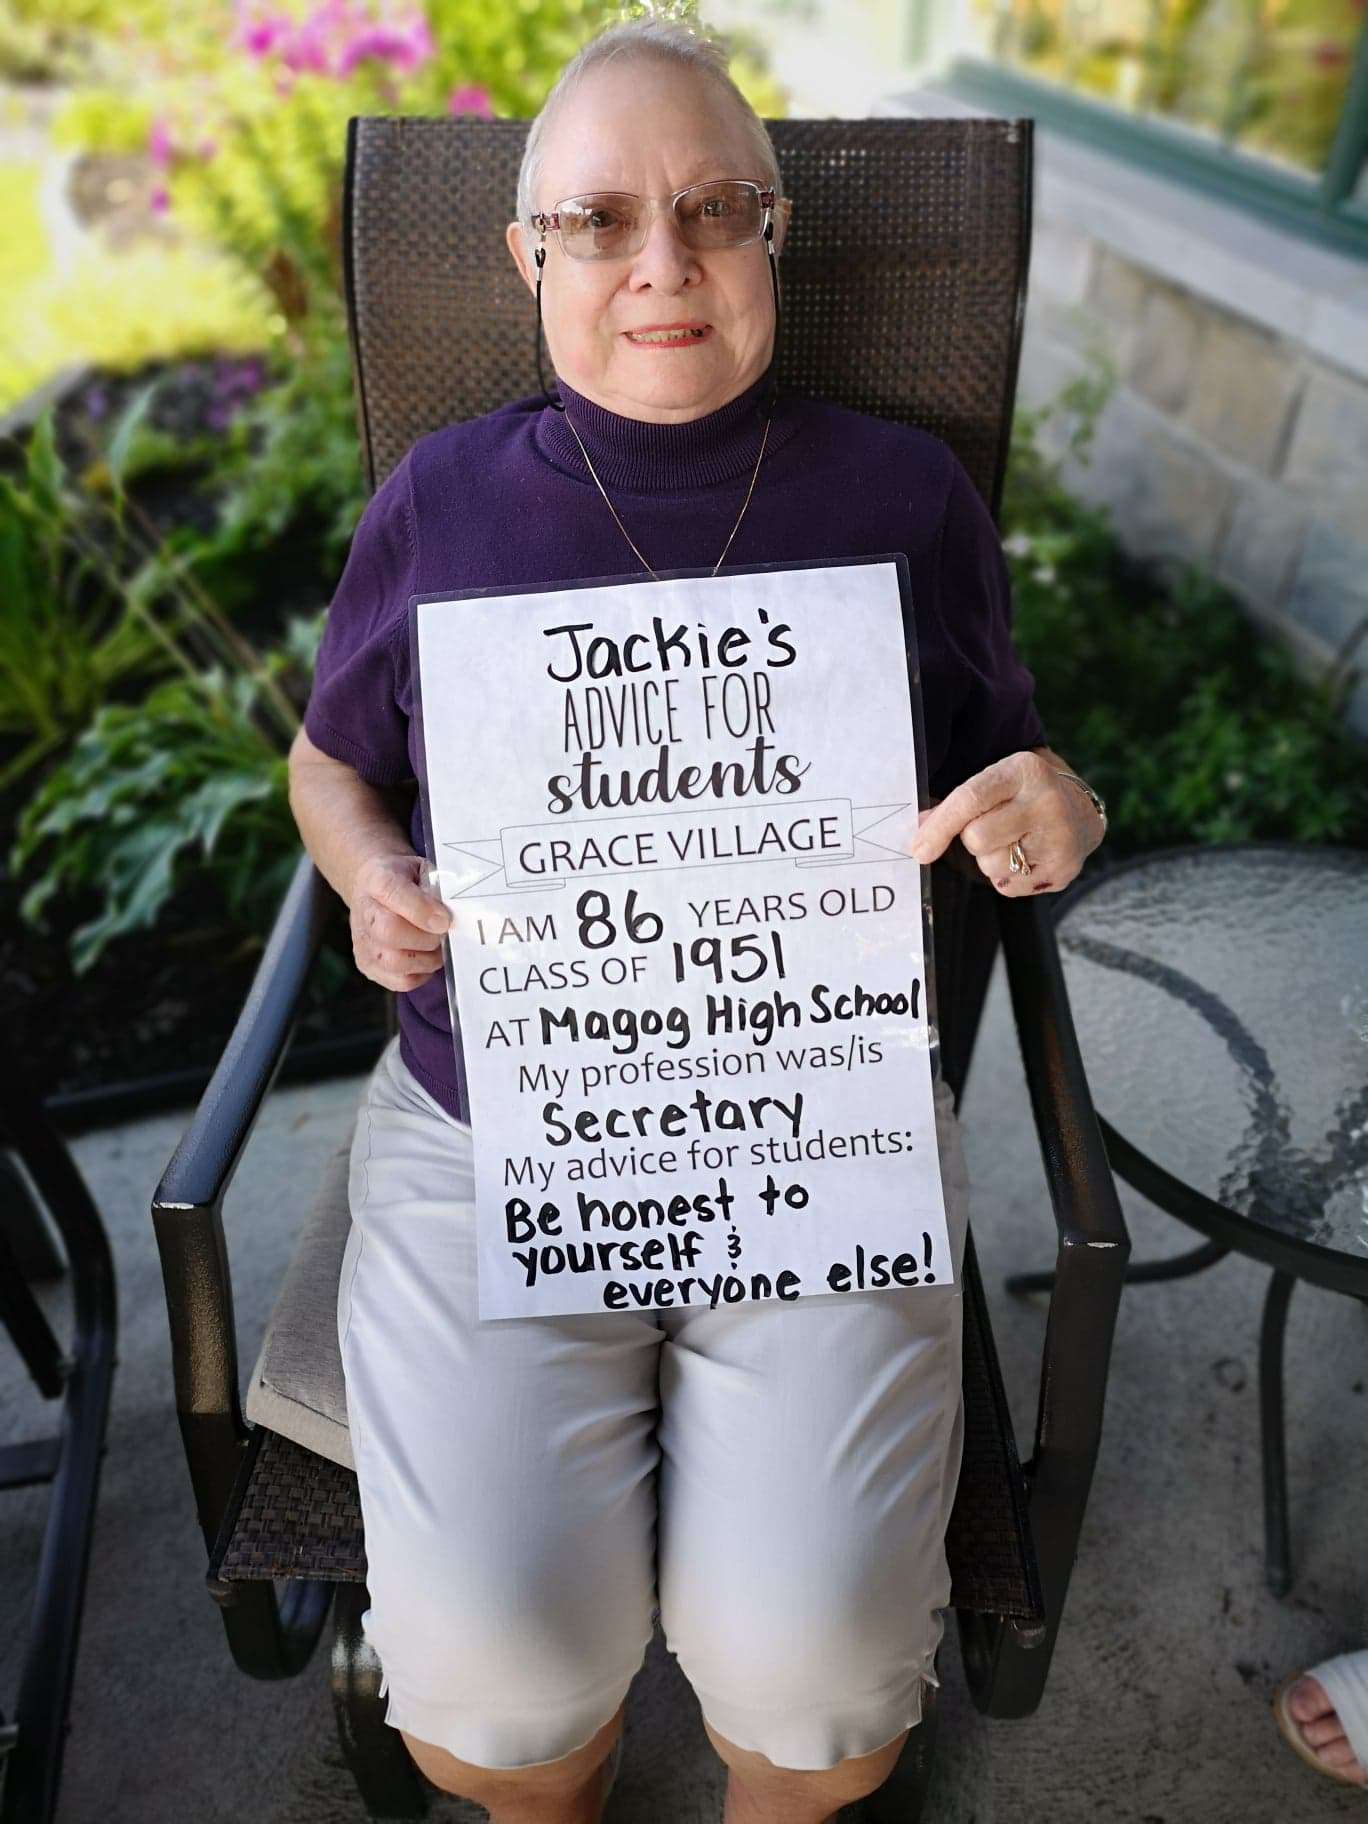 Jackie's
ADVICE FOR
students
GRACE VILLAGE
I AM 86 YEARS OLD
CLASS OF 1951
AT Magog High School
My profession was/is
Secretary
My advice for students:
Be honest to
yourself &
everyone else!